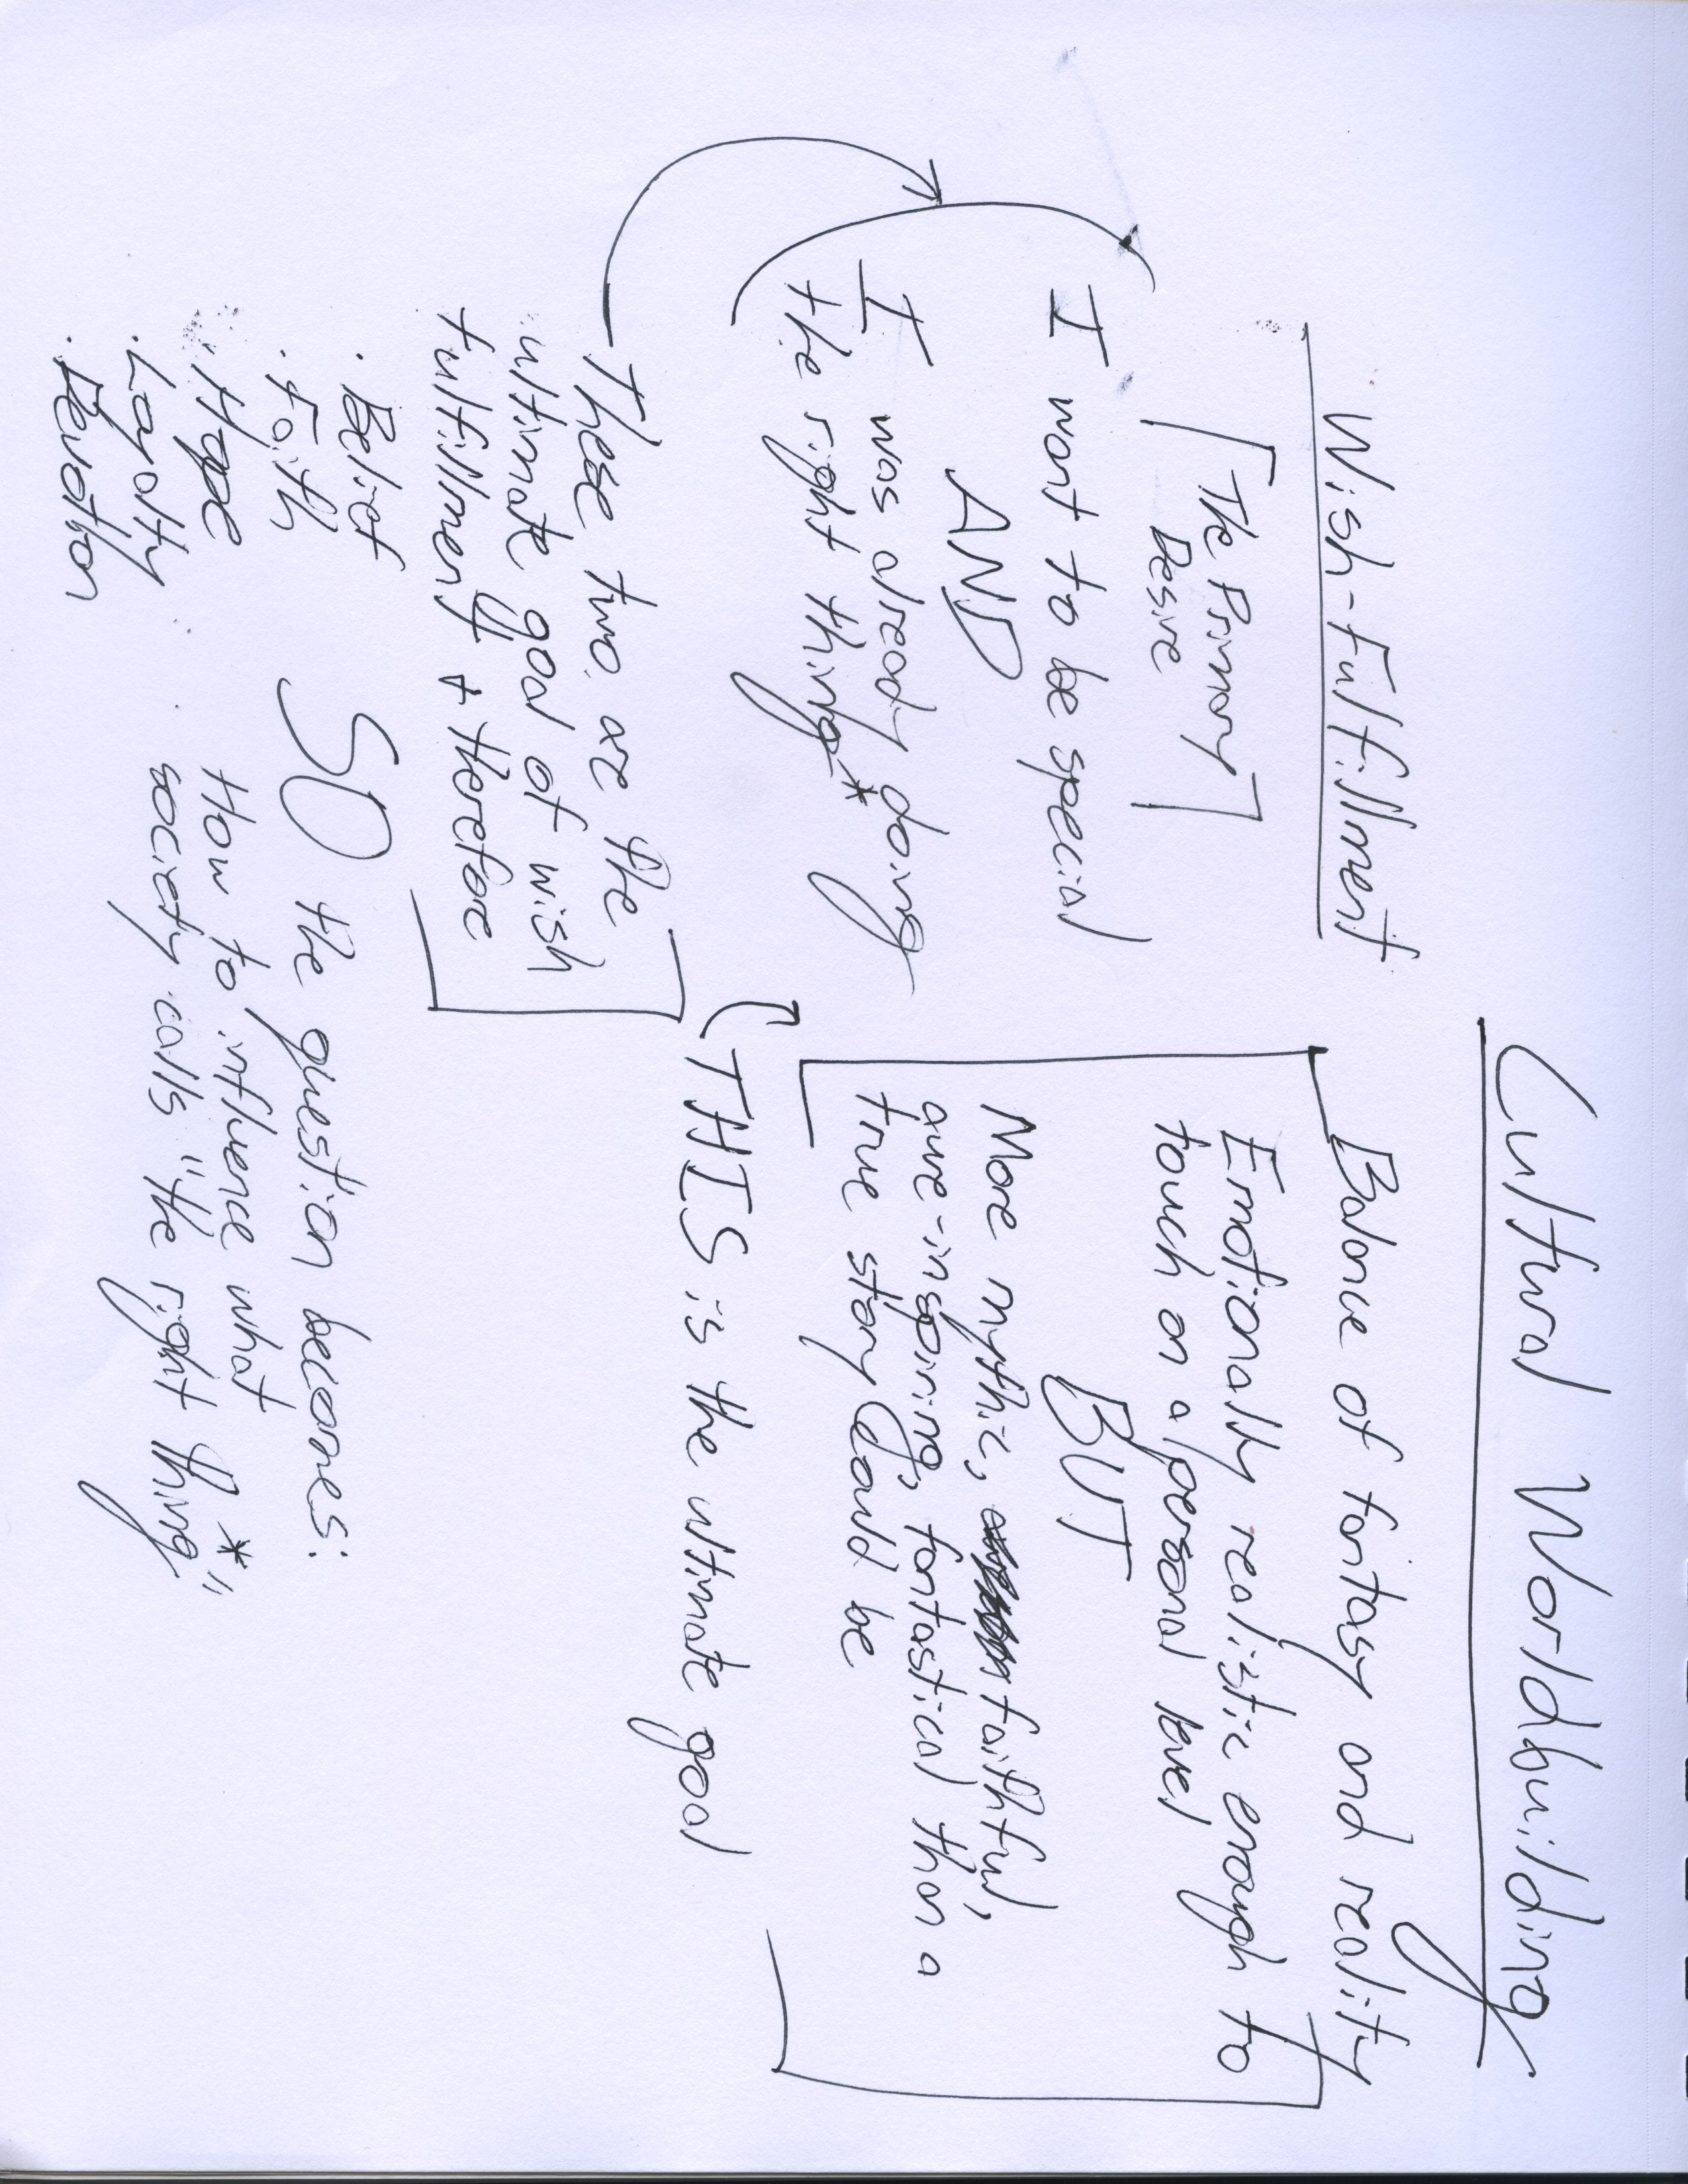 Cultural Worldbuilding
Balance of fantasy and reality
Emotionally realistic enough to
touch on a personal level
BUT
More mythic, faithful,
awe-inspiring, fantastical than a
true story could be
THIS is the ultimate goal
Wish-Fulfillment
The Primary
Desire
I want to be special
AND
I was already doing
the right thing*
These two are the
ultimate goal of wish
fulfillment + therefore
· Belief
· Faith
· Hope
· Loyalty
· Devotion
SO the question becomes:
How to influence what
society calls "the right thing*"